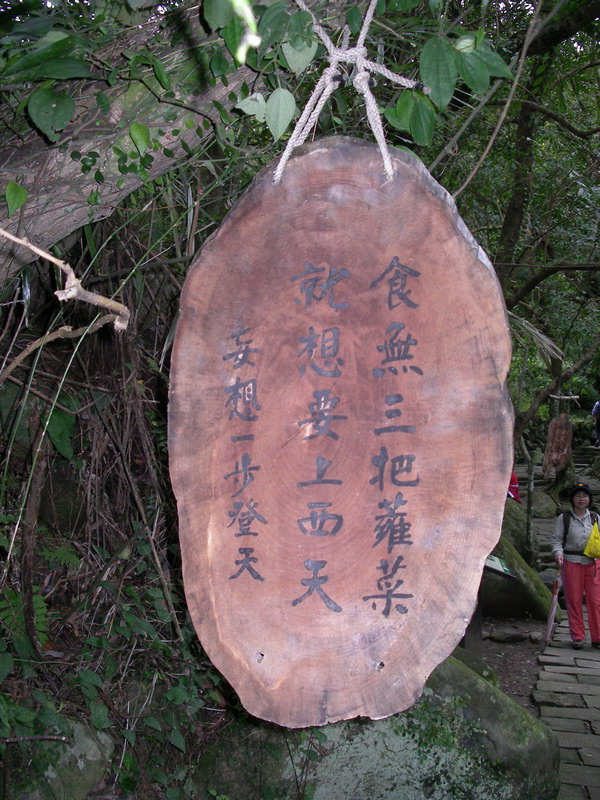 食無三把蕹菜
就想要上西天
妄想一步登天